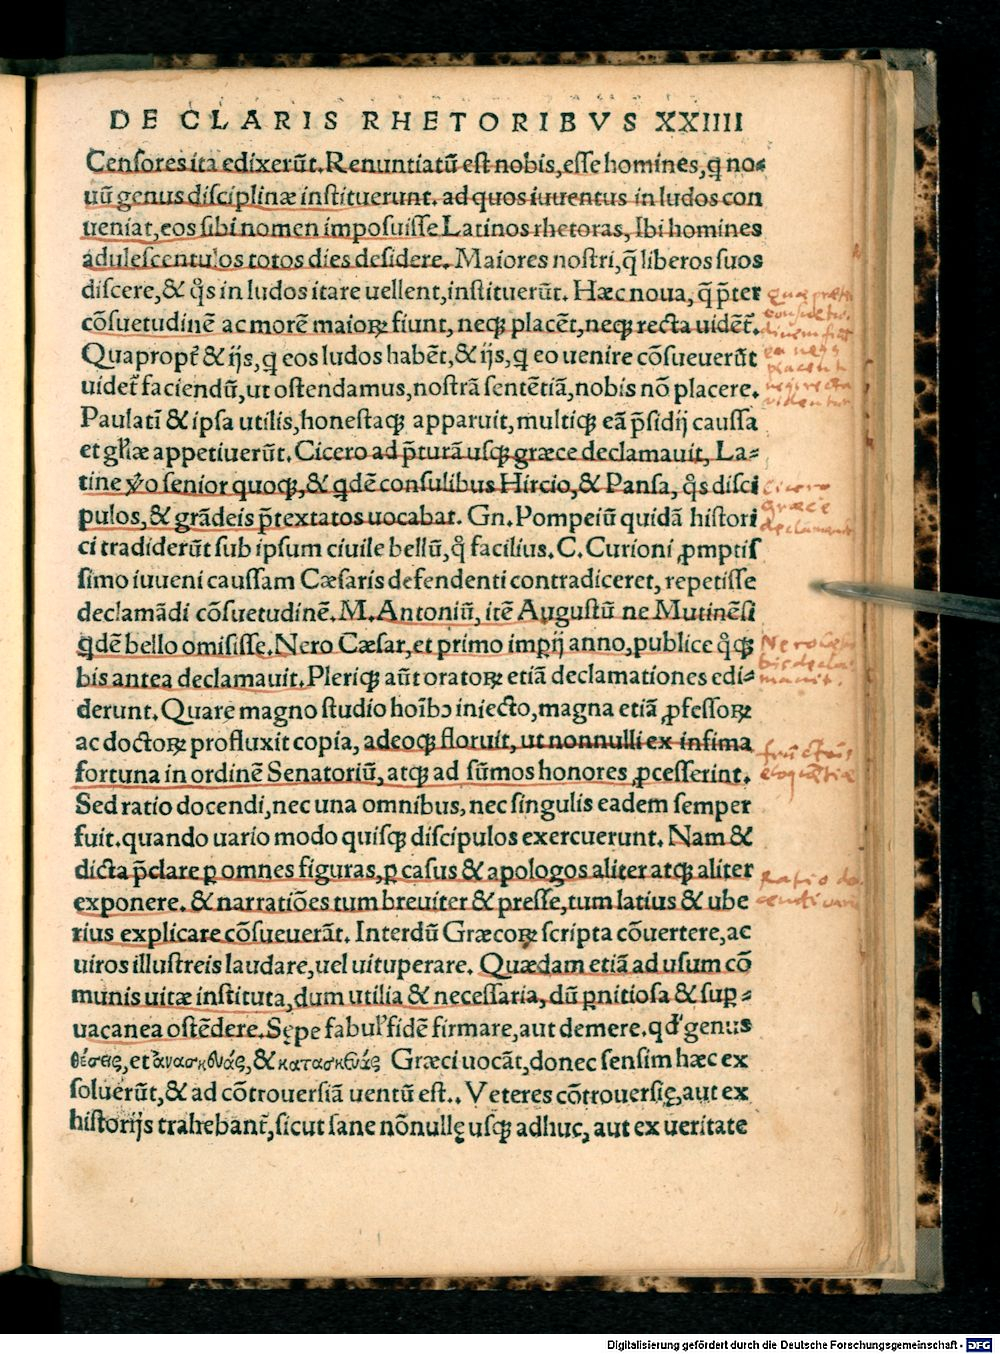 DE CLARIS RHETORIBVS XXIIII
Censores ita edixerūt. Renuntiatū est nobis, esse homines, q̄ no-
uū genus disciplinæ instituerunt. ad quos iuuentus in ludos con
ueniat, eos sibi nomen imposuisse Latinos rhetoras, Ibi homines
adulescentulos totos dies desidere. Maiores nostri, q̄ liberos suos
discere, & q̊s in ludos itare uellent, instituerūt. Hæc noua, q̄ p̄ter
cōsuetudinē ac morē maioꝝ fiunt, neqꝫ placēt, neqꝫ recta uidēt᷑.
Quapropt᷑ & ijs, q̄ eos ludos habēt, & ijs, q̄ eo uenire cōsueuerūt
uidet᷑ faciendū, ut ostendamus, nostrā sentētiā, nobis nō placere.
Paulatī & ipsa utilis, honestaqꝫ apparuit, multiqꝫ eā p̄sidij caussa
et gl̄iæ appetiuerūt. Cicero ad p̄turā usqꝫ græce declamauit, La-
tine ꝟo senior quoqꝫ, & qdē consulibus Hircio, & Pansa, q̊s disci
pulos, & grādeis p̄textatos uocabat. Gn. Pompeiū quidā histori
ci tradiderūt sub ipsum ciuile bellū, q̊ facilius. C. Curioni ꝓmptis
simo iuueni caussam Cæsaris defendenti contradiceret, repetisse
declamādi cōsuetudinē. M. Antoniū, itē Augustū ne Mutinēsi
qdē bello omisisse. Nero Cæsar, et primo imꝑij anno, publice q̊qꝫ
bis antea declamauit. Pleriqꝫ aūt oratoꝝ etiā declamationes edi-
derunt. Quare magno studio hoībꝰ iniecto, magna etiā ꝓfessoꝝ
ac doctoꝝ profluxit copia, adeoqꝫ floruit, ut nonnulli ex infima
fortuna in ordinē Senatoriū, atqꝫ ad sūmos honores ꝓcesserint.
Sed ratio docendi, nec una omnibus, nec singulis eadem semper
fuit. quando uario modo quisqꝫ discipulos exercuerunt. Nam &
dicta p̄clare ꝑ omnes figuras, ꝑ casus & apologos aliter atqꝫ aliter
exponere. & narratiōes tum breuiter & presse, tum latius & ube
rius explicare cōsueuerāt. Interdū Græcoꝝ scripta cōuertere, ac
uiros illustreis laudare, uel uituperare. Quædam etiā ad usum cō
munis uitæ instituta, dum utilia & necessaria, dū ꝑnitiosa & suꝑ-
uacanea ostēdere. Sępe fabul᷑ fidē firmare, aut demere. qd᷑ genus
θέσεις, et ἀνασκευάς, & κατασκευάς Græci uocāt, donec sensim hæc ex
soluerūt, & ad cōtrouersiā uentū est.. Veteres cōtrouersię, aut ex
historijs trahebant᷑, sicut sane nōnullę usqꝫ adhuc, aut ex ueritate
neqꝫ placent
neqꝫ recta
videntur
Cicero
Græce
Nero Cæsar
bis decla-
mavit.
fructus
eloquētiæ
Ratio do
cendi varia
Digitalisierung gefördert durch die Deutsche Forschungsgemeinschaft - DFG